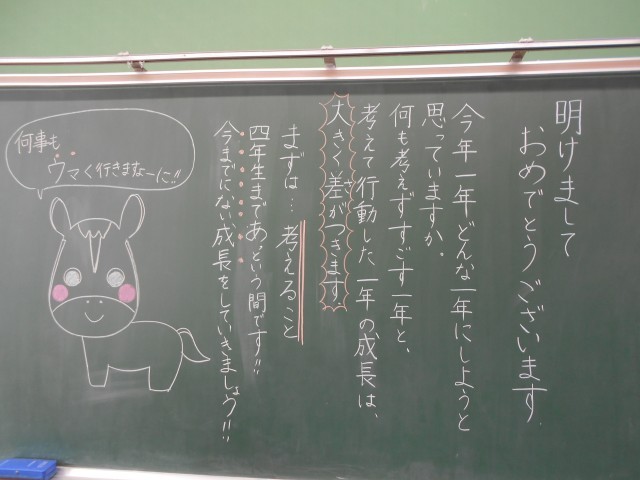 明けまして
おめでとうございます。
今年一年どんな一年にしようと
思っていますか。
何も考えずすごす一年と、
考えて行動した一年の成長は、
大きく差がつきます。
さ
まずは…考えること
四年生まであっという間です!!
今までにない成長をしていきましょう!!
何事も
ウマく行きまなーに!!